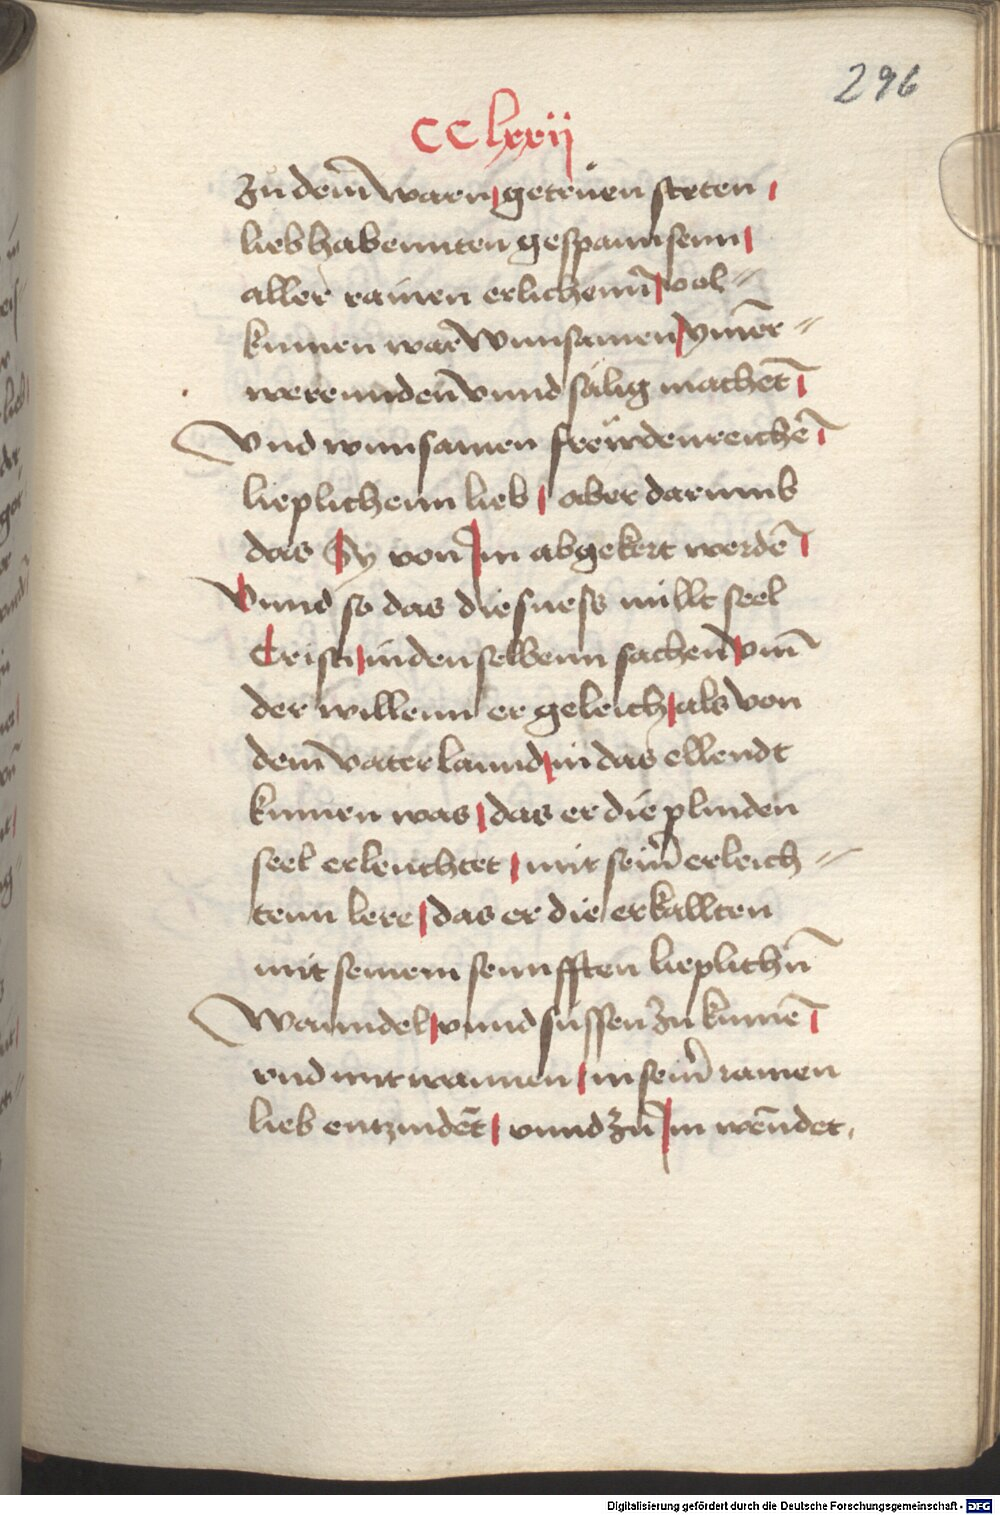 296
CClxxij
zu dem̄ warn getreüen steten
liebhabennten gespannsenn
aller rainen erlichenn̄ vol=
kumen war wunsamen ymer=
werennden̄ vnnd sälig machet̄
Vnd wunsamen freẅdenreichē
lieplichenn lieb aber darumb
das Sy von Im abgekert werdē
Vnnd so das die sness millt seel
Cristi in den selbenn sachen̄ vnn̄
der willenn er geleich als von
dem̄ vaterlannd in das ellendt
kumen was das er die plinden
seel erleuchtet mit seim̄ erleich=
tenn lere das er die erkallten
mit seinem sennfften lieplichn̄
Wanndel vnnd süssen zu kumē
vnd mitwannen in seim̄ rainen
lieb entzindet̄ vnnd zu Im wendet.
Digitalisierung gefördert durch die Deutsche Forschungsgemeinschaft - DFG